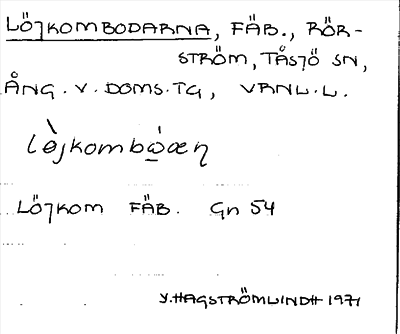 LÖJKOMBODARNA, FÄB., RÖR-
STRÖM, TÅSJÖ SN,
ÅNG. V. DOMS. TG, VRNL. L.
lə̀jkombώ̣æη
LÖJKOM FÄB. Gn 54
Y. HAGSTRÖMLINDH 1971